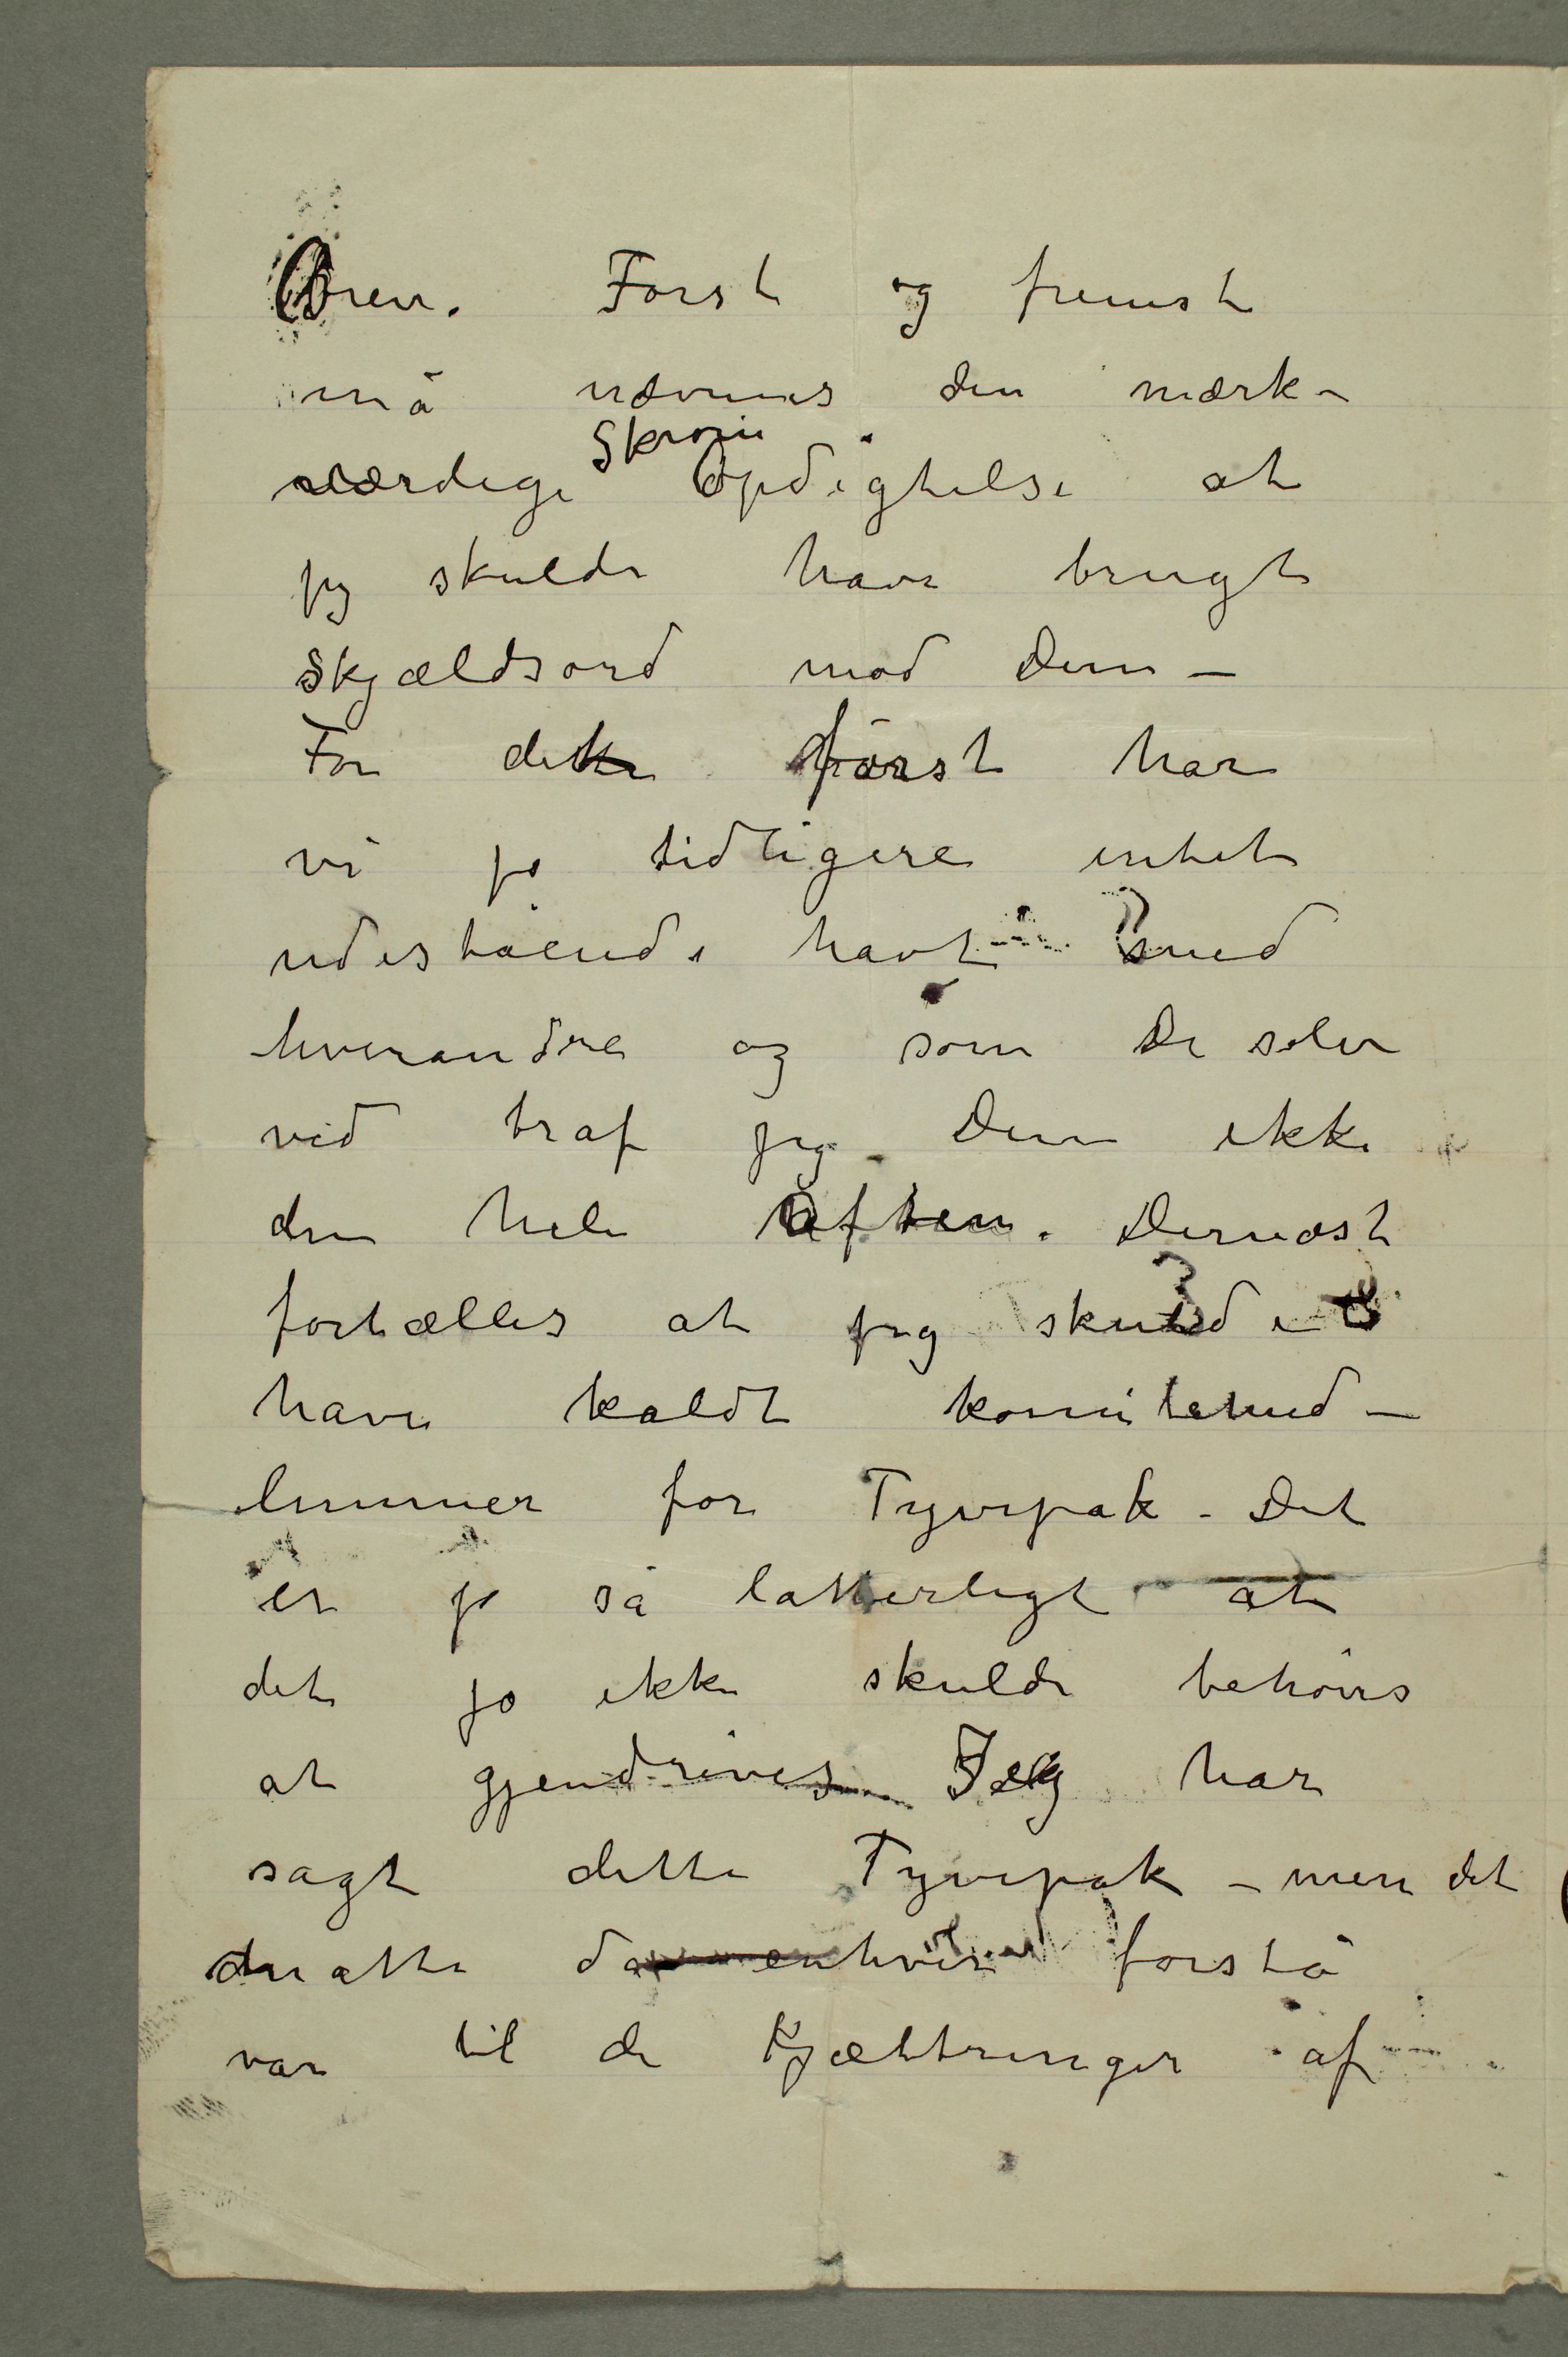 Ører. Først og fremst
må nævnes den mærk-
værdige Skrøne
Opdigtelse at
jeg skulde have brugt
Skjældsord mod Dem –
For det første har
vi jo tidligere intet
udestående havt med
hverandre og som De selv
ved traf jeg Dem ikke
den hele Aften. Dernæst
fortælles at jeg skulde
have kaldt komitemed-
lemmer for Tyvepak – Det
er jo så latterligt at
det jo ikke skulde behøves
at gjendrives Jeg har
sagt dette Tyvepak – men det
måtte da enhver forstå
var til de Kjæltringer af